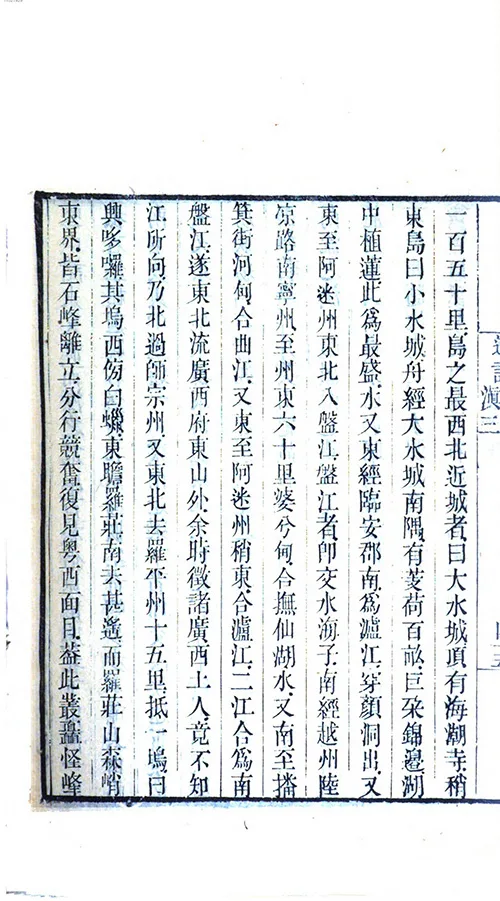 遊記滇三
一百五十里島之最西北近城者曰大水城頂有海潮寺稍
東島曰小水城舟經大水城南隅有芰荷百畝巨朶錦邉湖
中植蓮此爲最盛水又東經臨安郡南爲瀘江穿顔洞出又
東至阿迷州東北入盤江盤江者卽交水海子南經越州陸
凉路南寧州至州東六十里婆兮甸合撫仙湖水又南至播
箕街河甸合曲江又東至阿迷州稍東合瀘江二江合爲南
盤江遂東北流廣西府東山外余時徵諸廣西土人竟不知
江所向乃北過師宗州又東北去羅平州十五里抵一塢曰
興哆囉其塢西傍白蠟東瞻羅莊南去甚遙而羅莊山森峭
東界皆石峰離立分行競奮復見粤西面目葢此叢矗怪峰